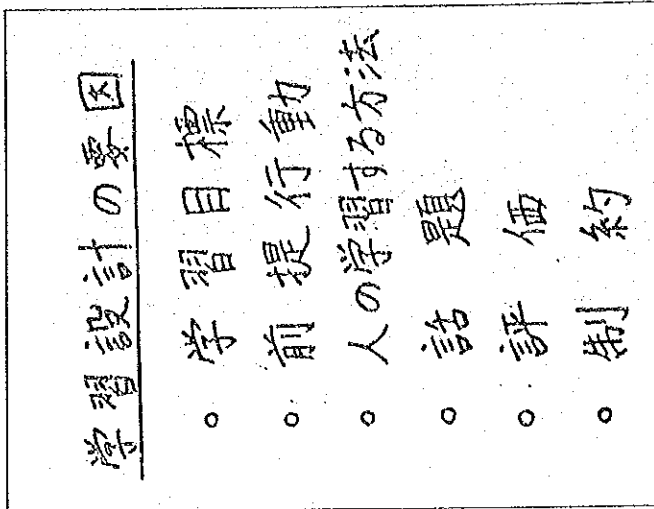 学習設計の要因
○ 学習目標
○ 前提行動
○ 人の学習する方法
○ 話題
○ 評価
○ 制約